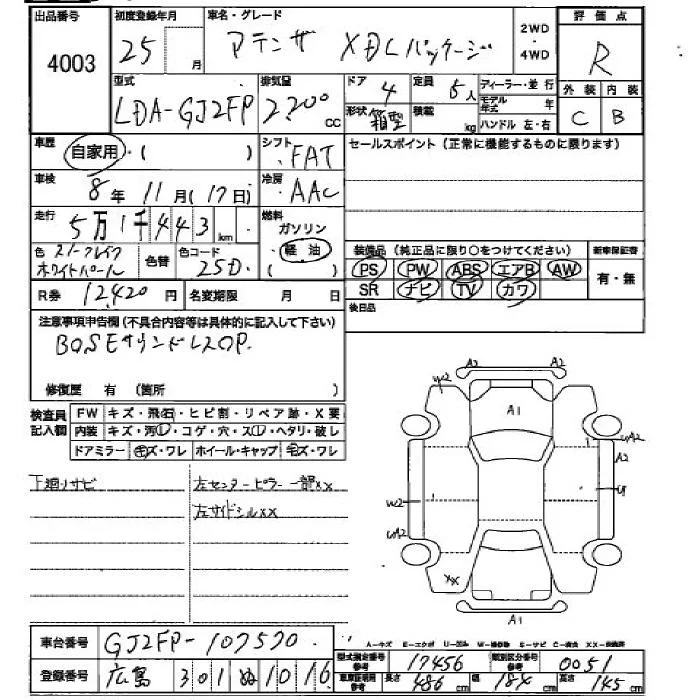 出品番号 初度登録年月 車名・グレード 評価点
4003 25 月 アテンザ XDLパッケージ 2WD 4WD R
型式 排気量 ドア 定員 ディーラー・並行 外装 内装
LDA-GJ2FP 2200 cc 4 5人 モデル年式 年 C B
形状 箱型 積載 kg ハンドル 左・右
車歴 自家用・( ) シフト FAT セールスポイント (正常に機能するものに限ります)
車検 8年 11月 (17日) 冷房 AAC
走行 5万1千443 km 燃料 ガソリン 軽油 ( )
色 スノーフレイクホワイトパール 色替 色コード 25D 装備品 (純正品に限り○をつけてください) 新車保証書
PS PW ABS エアB AW 有・無
SR ナビ TV カワ
R券 12420円 名変期限 月 日 後日品
注意事項申告欄 (不具合内容等は具体的に記入して下さい)
BOSEサウンドレスOP.
修復歴 有 (箇所 )
検査員記入欄 FW キズ・飛(石)・ヒビ割・リペア跡・X要
内装 キズ・汚レ・コゲ・穴・スレ・ヘタリ・破レ
ドアミラー キズ・ワレ ホイール・キャップ キズ・ワレ
下廻りサビ 左センターピラー 一部XX
左サイドシルXX
A2 A2
W2
A1
UA2
A2
W2
U1
UA2
XX
A1
車台番号 GJ2FP-107570.
登録番号 広島 301 ぬ 1016
A-キズ E-エクボ U-凹み W-補修跡 S-サビ C-腐食 XX-交換済
型式指定番号 参考 17456 類別区分番号 参考 0051
車庫証明用 参考 長さ 486 cm 幅 184 cm 高さ 145 cm